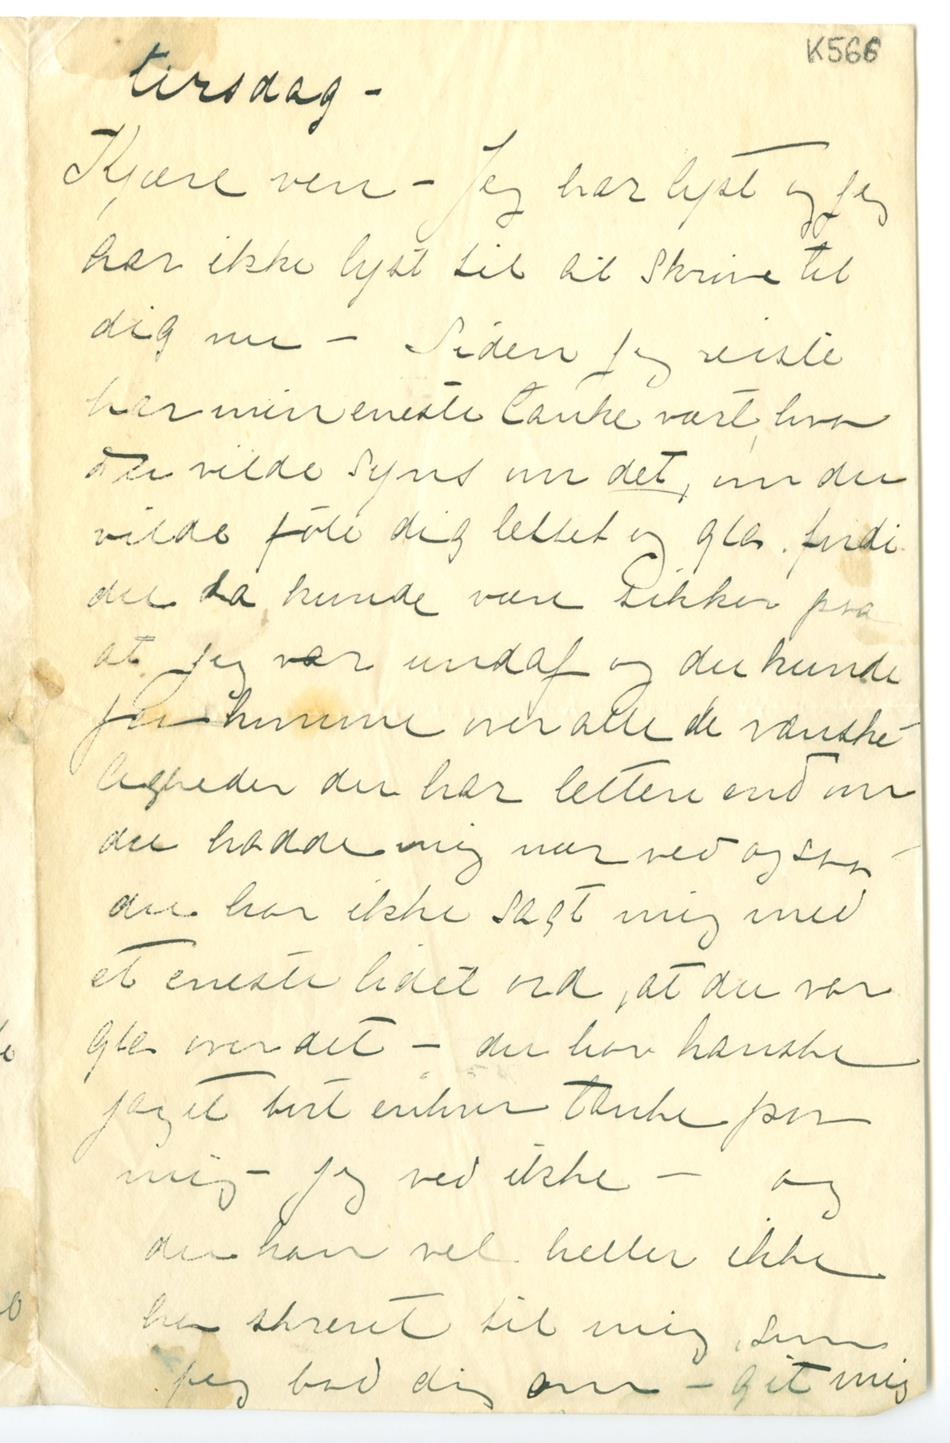 K566
tirsdag –
Kjære ven – Jeg har lyst og jeg
har ikke lyst til at skrive til
dig nu – Siden jeg reiste
har min eneste tanke vært, hva
du vilde syns om det, om du
vilde føle dig lettet og gla. fordi
du da kunde være sikker paa
at jeg var undaf og du kunde
komme over alle de vanske-
ligheder du har lettere end om
du hadde mig nær ved og saa
du har ikke sagt mig med
et eneste lidet ord, at du var
gla over det – du har kanske
jaget bort enhver tanke paa
mig – jeg ved ikke – og
du har vel heller ikke
skrevet til mig, som
jeg bad dig om – git mig